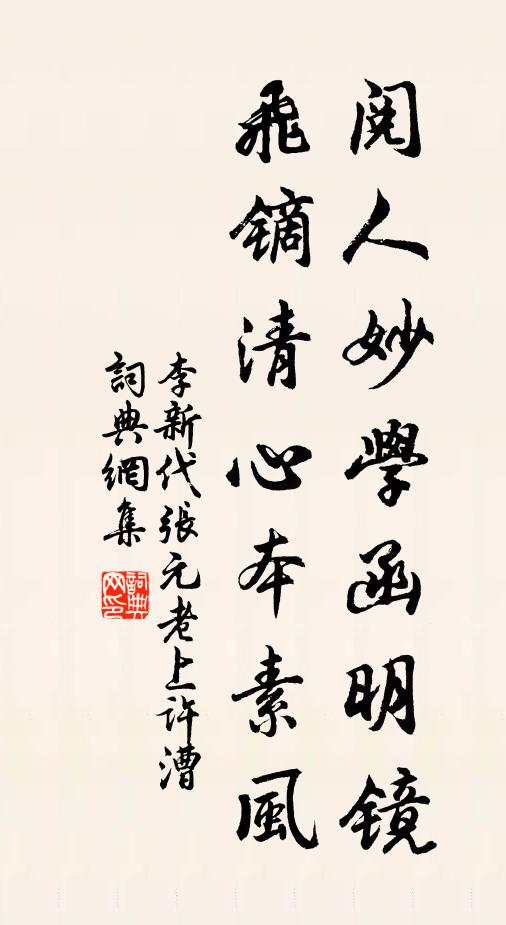 閱人妙學函明镜
飛镝清心本素風
李新代張元老上許漕
詞典網集
詞典網印